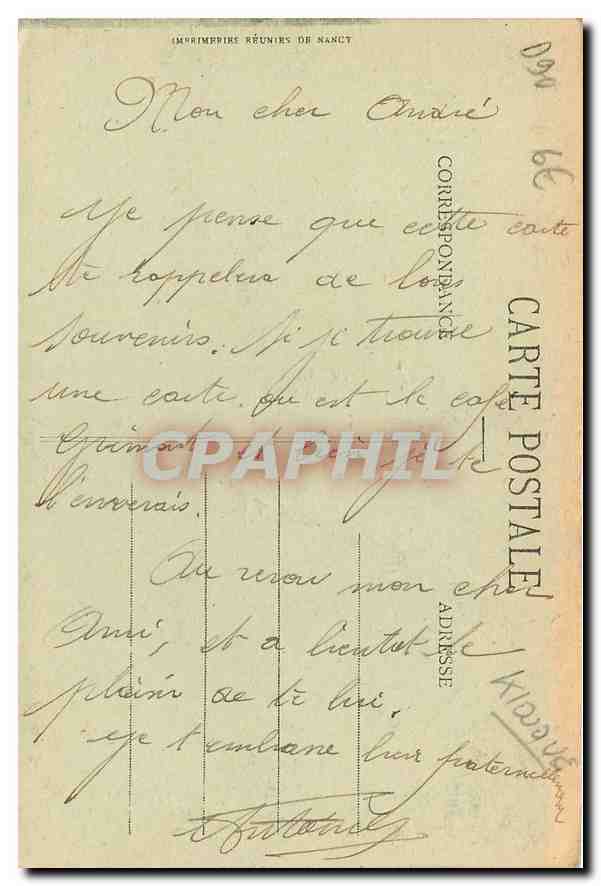 IMPRIMERIES RÉUNIES DE NANCY
Mon cher André
Je pense que cette carte
te rappelera de bons
souvenirs. Si je trouve
une carte ou est le café
Grimont je te
l'enverais.
Au revoir mon cher
Ami, et a bientot le
plaisir de te lire.
Je t'embrasse bien
CORRESPONDANCE
CARTE POSTALE
ADRESSE
D90
6€
CPAPHIL